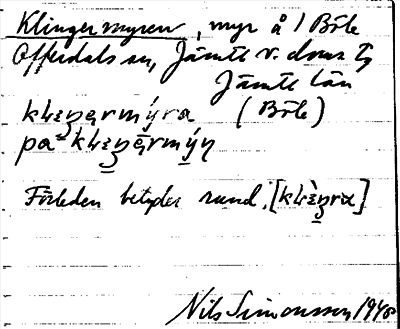 Klingermyren, myr å 1 Böle
Offerdals sn, Jämtl v. doms tg
Jämtl län
klɛŋərmýra (Böle)
pa klɛŋərmýn
Förleden betyder rund, [klɛ̀ŋra]
Nils Simonsson 1948